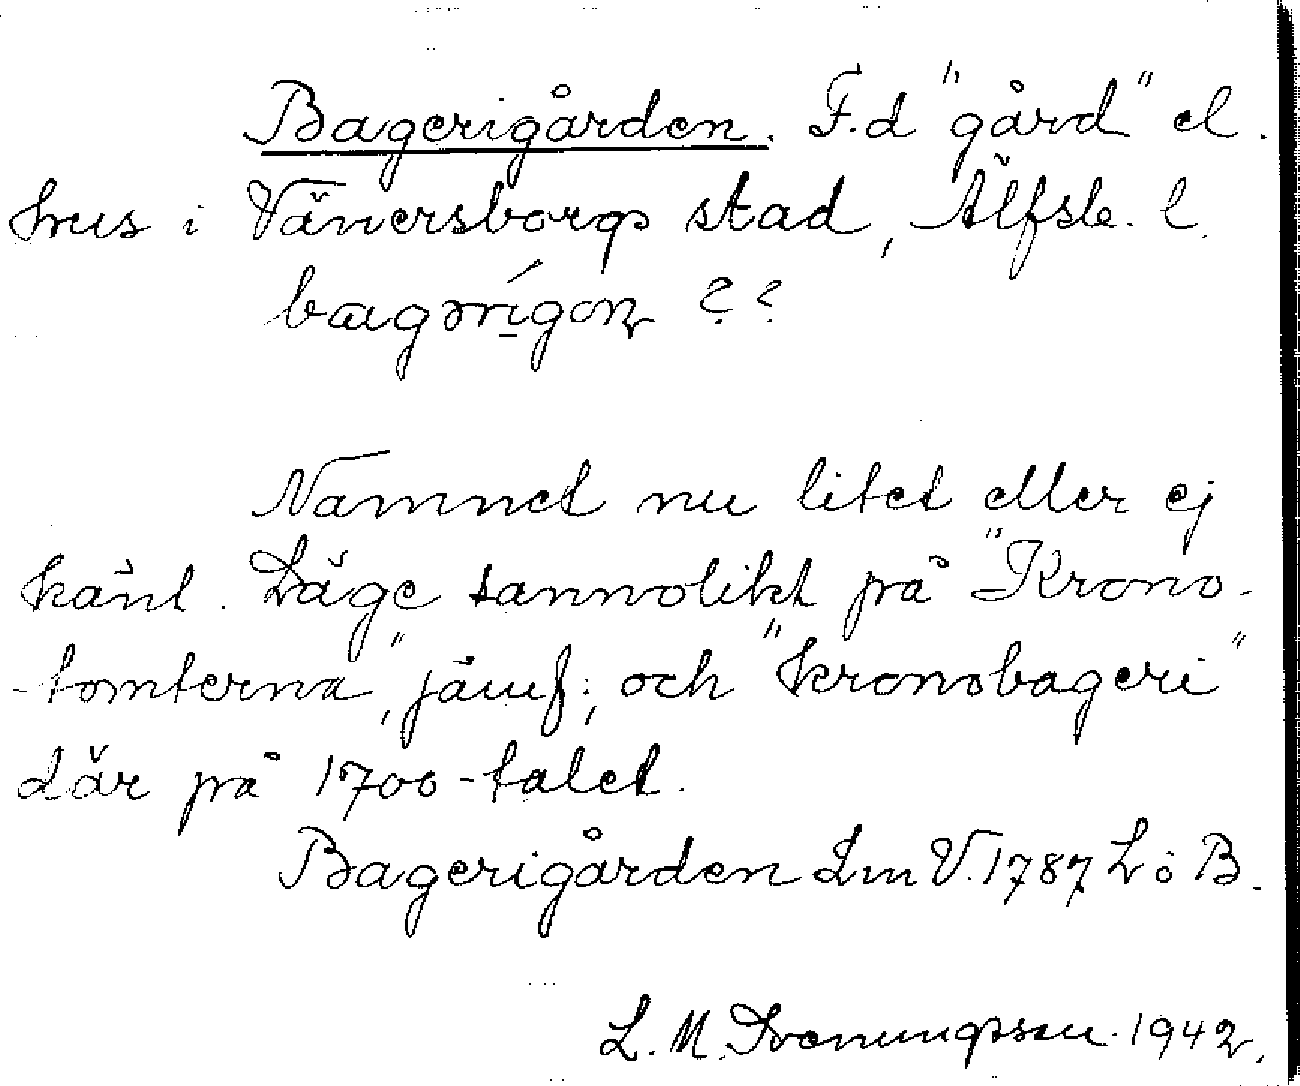 Bagerigården. F.d "gård" el.
hus i Vänersborgs stad, Älfsb. l.
??
Namnet nu litet eller ej
känt. Läge sannolikt på "Krono-
-tomterna", jämf; och "kronobageri"
där på 1700-talet.
Bagerigården Lm V. 1787 L ö B.
L. M. Svenungsson. 1942.